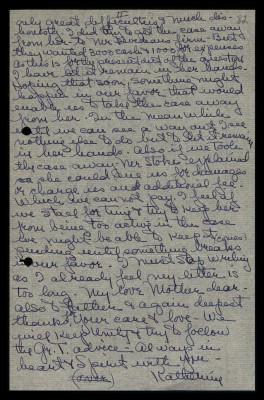 5
52
very great difficulties & much dis-
honesty. I did try to get the case away
from her - to Mr. Simmons firm - But
they wanted $1000 cash & 1000 for expenses
as this is forty percent out of the question
I have let it remain in her hands.
hoping that soon something might
happen in our favor that would
enable us to take the case away
from her. In the meanwhile
until we can see a way out I see
nothing else to do but let it remain
in her hands. Also if we took
the case away - Mr. Stokes explained
to she could sue us for damages
or charge us and additional fee.
Which we can not pay. I feel if
we stall for time & try to keep her
from being too active in the case
we might be able to keep it
pending until something breaks
in our favor. I must stop writing
as I already feel my letter is
too long. My love Mother dear-
also to Father & again deepest
thanks, your care & love. We
will keep Unity & try to follow
the Gr. T. advice - Always in
heart & Spirit with you -
(over) Katherine